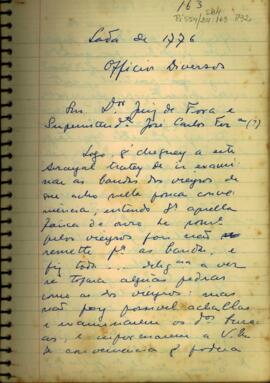 163
SBH
Pi 554 P32
Lata de 1776
Officios Diversos
Snr. Dor Juiz de Fora e
Superintend.e José Carlos Fer.a (?)
Logo q' cheguey a este
Arrayal tratey de ir exami-
nar as bandas dos vieyros de
que acho nella pouca conve-
niencia, estendo q' aquella
faisca de ouro se
pelos vieyros foi não
remette p.a as bandas, e
fiz toda delig.a a ver
se topava alguas pedras
como as dos vieyros, mas
não foy possivel achallas
e examinarem os dos bura-
cos, e informarem a V.M.
da conveniencia q' podera